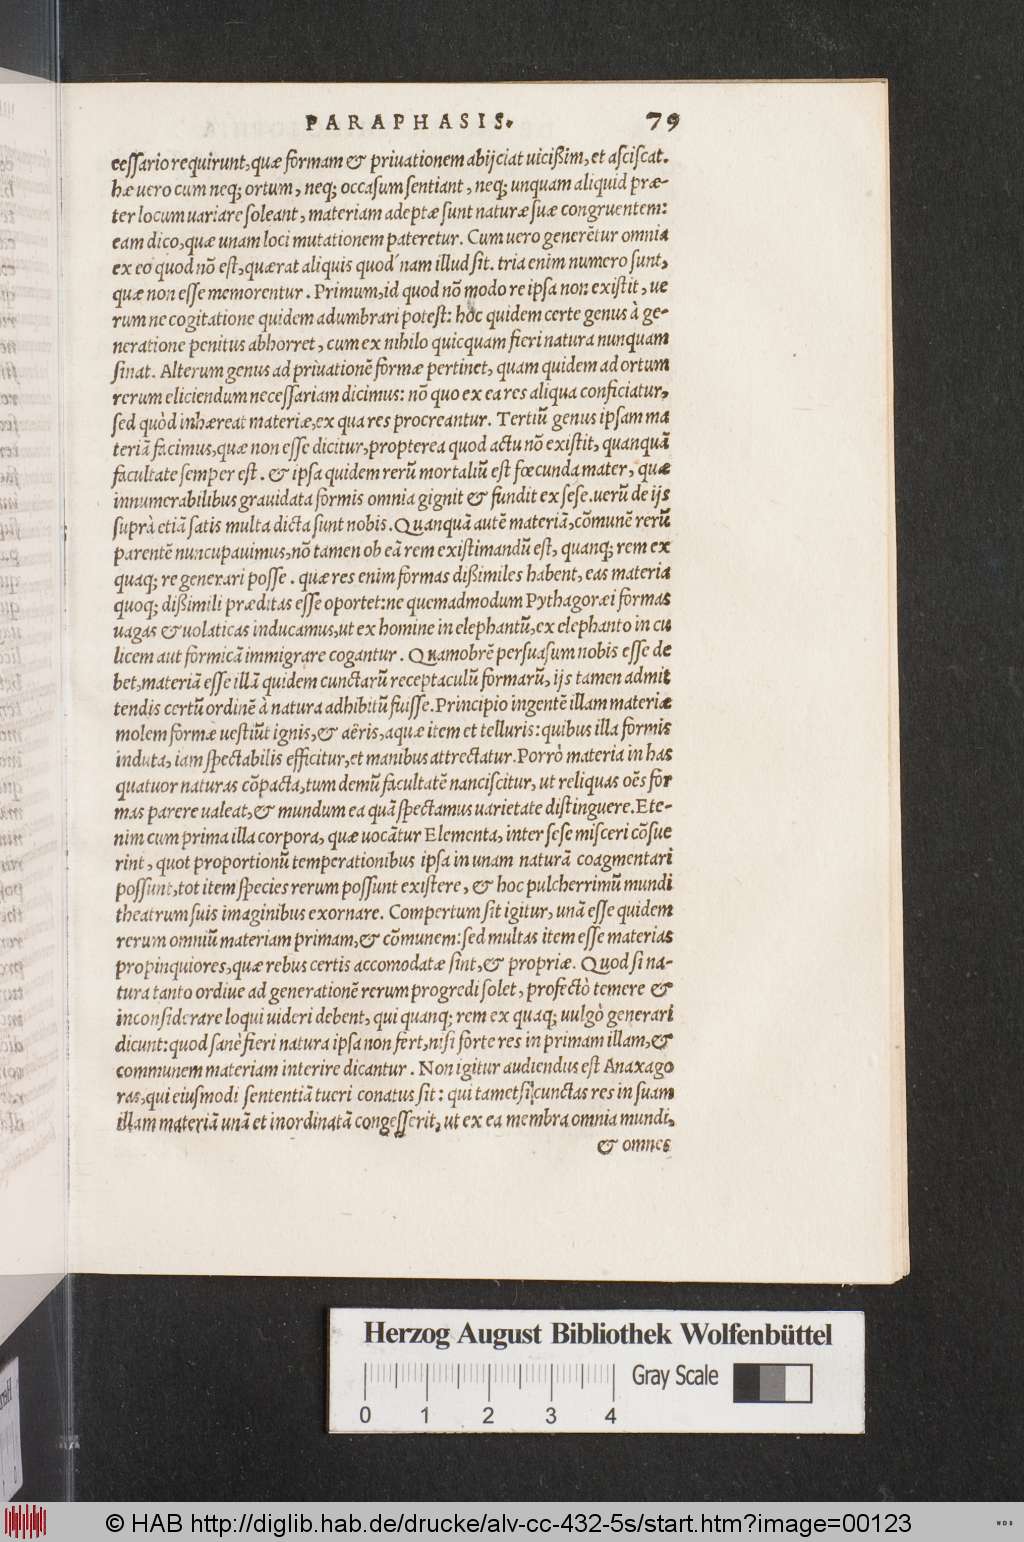 PARAPHASIS. 79
cessario requirunt, quæ formam & priuationem abijciat uicißim, et asciscat.
hæ uero cum neq; ortum, neq; occasum sentiant, neq; unquam aliquid præ-
ter locum uariare soleant, materiam adeptæ sunt naturæ suæ congruentem:
eam dico, quæ unam loci mutationem pateretur. Cum uero generētur omnia
ex eo quod nō est, quærat aliquis quod nam illud sit. tria enim numero sunt,
quæ non esse memorentur. Primum, id quod nō modo re ipsa non existit, ue
rum ne cogitatione quidem adumbrari potest: hoc quidem certe genus à ge-
neratione penitus abhorret, cum ex nihilo quicquam fieri natura nunquam
sinat. Alterum genus ad priuationē formæ pertinet, quam quidem ad ortum
rerum eliciendum necessariam dicimus: nō quo ex ea res aliqua conficiatur,
sed quòd inhæreat materiæ, ex qua res procreantur. Tertiū genus ipsam ma
teriā facimus, quæ non esse dicitur, propterea quod actu nō existit, quanquā
facultate semper est. & ipsa quidem rerū mortaliū est fœcunda mater, quæ
innumerabilibus grauidata formis omnia gignit & fundit ex sese. uerū de ijs
suprà etiā satis multa dicta sunt nobis. Quanquā autē materiā, cōmunē rerū
parentē nuncupauimus, nō tamen ob eā rem existimandū est, quanq; rem ex
quaq; re generari posse. quæ res enim formas dißimiles habent, eas materia
quoq; dißimili præditas esse oportet: ne quemadmodum Pythagoræi formas
uagas & uolaticas inducamus, ut ex homine in elephantū, ex elephanto in cu
licem aut formicā immigrare cogantur. Quamobrē persuasum nobis esse de
bet, materiā esse illā quidem cunctarū receptaculū formarū, ijs tamen admit
tendis certū ordinē à natura adhibitū fuisse. Principio ingentē illam materiæ
molem formæ uestiūt ignis, & aëris, aquæ item et telluris: quibus illa formis
induta, iam spectabilis efficitur, et manibus attrectatur. Porrò materia in has
quatuor naturas cōpacta, tum demū facultatē nanciscitur, ut reliquas oēs for
mas parere ualeat, & mundum ea quā spectamus uarietate distinguere. Ete-
nim cum prima illa corpora, quæ uocātur Elementa, inter sese misceri cōsue
rint, quot proportionū temperationibus ipsa in unam naturā coagmentari
possunt, tot item species rerum possunt existere, & hoc pulcherrimū mundi
theatrum suis imaginibus exornare. Compertum sit igitur, unā esse quidem
rerum omniū materiam primam, & cōmunem: sed multas item esse materias
propinquiores, quæ rebus certis accomodatæ sint, & propriæ. Quod si na-
tura tanto ordiue ad generationē rerum progredi solet, profectò temere &
inconsiderare loqui uideri debent, qui quanq; rem ex quaq; uulgò generari
dicunt: quod sanè fieri natura ipsa non fert, nisi forte res in primam illam, &
communem materiam interire dicantur. Non igitur audiendus est Anaxago
ras, qui eiusmodi sententiā tueri conatus sit: qui tametsi cunctas res in suam
illam materiā unā et inordinatā congesserit, ut ex ea membra omnia mundi,
& omnes
Herzog August Bibliothek Wolfenbüttel
Gray Scale
0 1 2 3 4
© HAB http://diglib.hab.de/drucke/alv-cc-432-5s/start.htm?image=00123